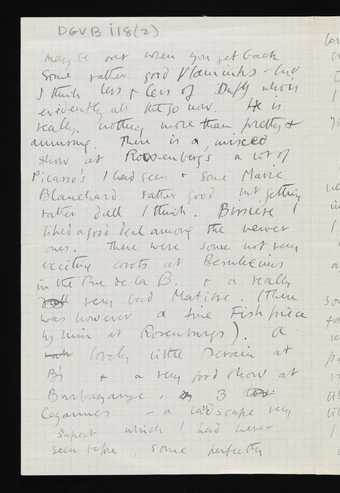 DGVB i18(2)
maybe out when you get back
Some rather good Vlamincks - but
I think less & less of Dufy who is
evidently all the go now. He is
really nothing more than pretty &
amusing. There is a mixed
show at Rosenberg's a lot of
Picasso's I had seen & some Marie
Blanchard rather good but getting
rather dull I think. Bissière I
liked a good deal among the newer
ones. There were some not very
exciting Corots at Bernheims
in the Rue de la B. & a really
very bad Matisse. (There
was however a fine Fish piece
by him at Rosenbergs). A
lovely little Derain at
B's & a very good show at
Barbazanges. 3
Cezannes - a landscape very
superb which I had never
seen before, some perfectly